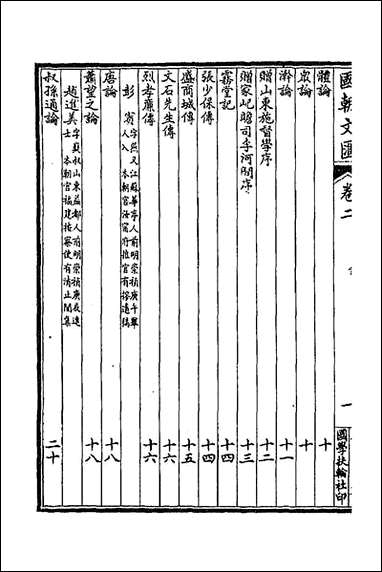 國朝文匯 卷二 一 國學扶輪社印
體論 十
眾論 十
瀞論 十一
贈山東施督學序 十二
贈家屺昭司李河間序 十三
霧堂記 十四
張少保傳 十四
盛商城傳 十五
文石先生傳 十六
烈孝廉傳 十六
彭賓 字燕又江蘇華亭人前明崇禎庚午舉人入本朝官汝寧府推官有搜遺稿
唐論 十八
蕭望之論 十八
趙進美 字嶷叔山東益都人前明崇禎庚辰進士本朝官福建按察使有清止閣集
叔孫通論 二十